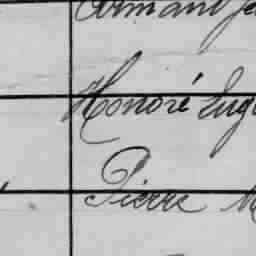 Armand
Honoré Eug
Pierre M